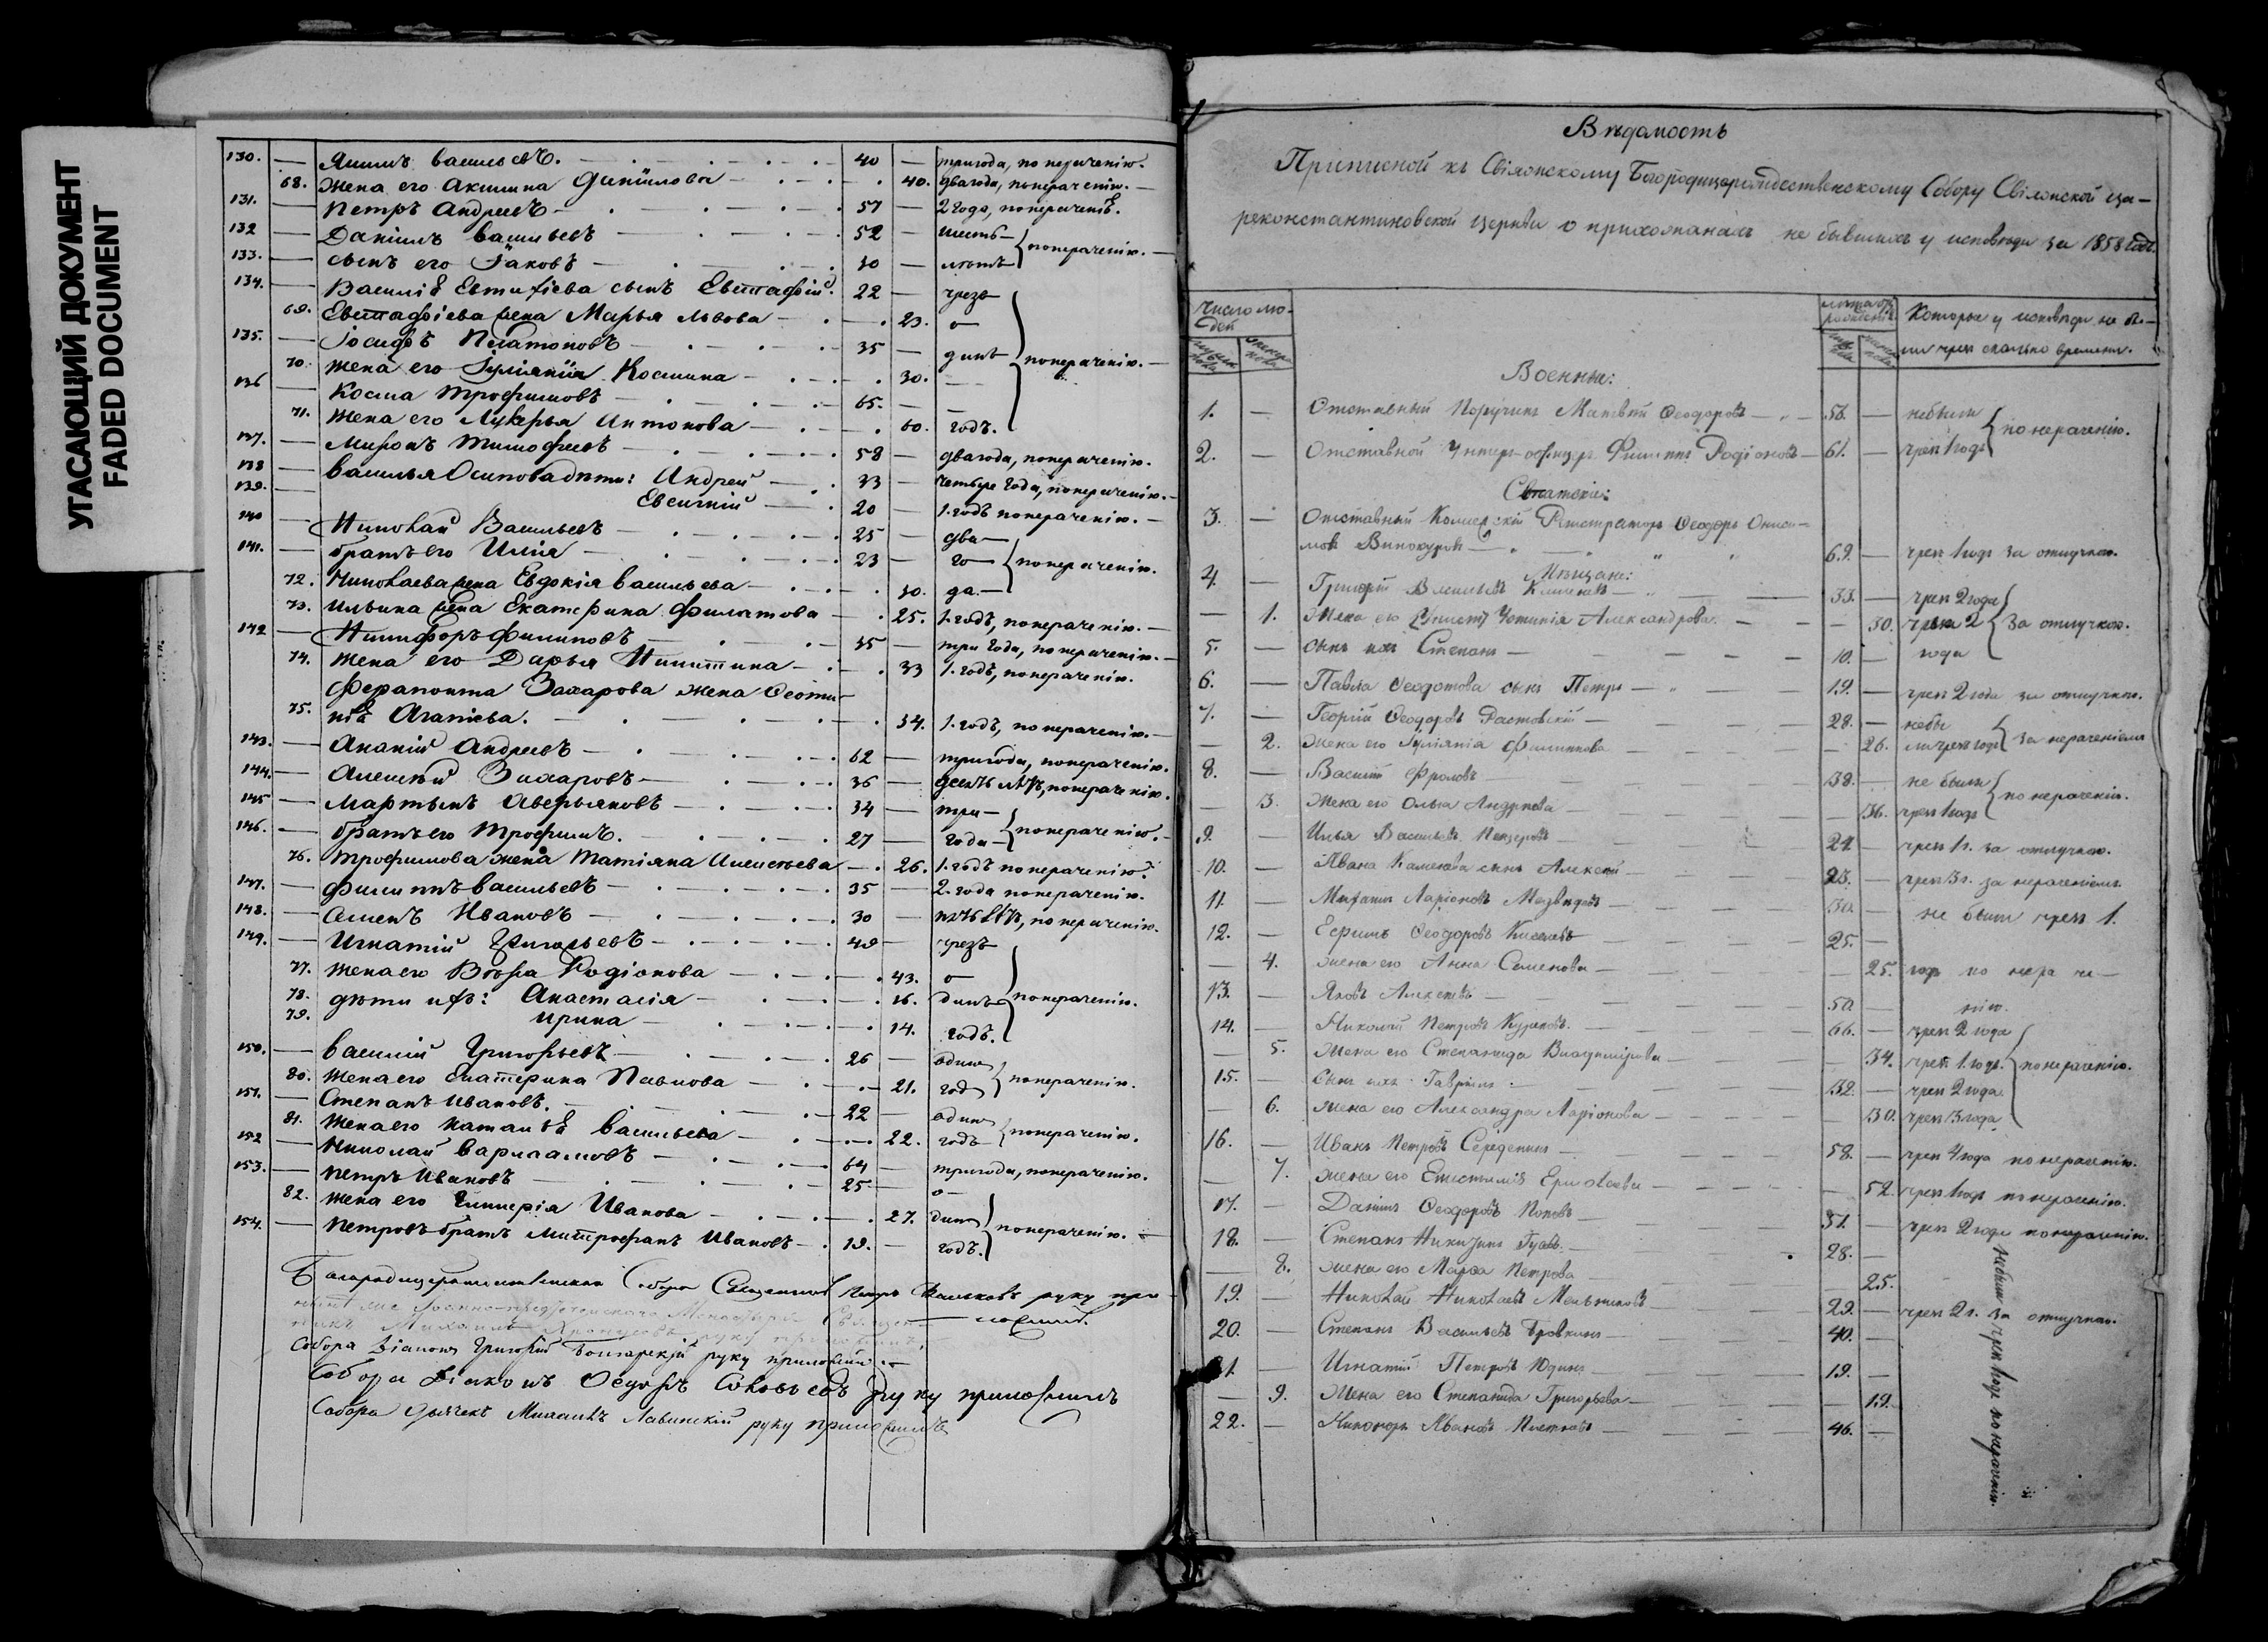 УГАСАЮЩИЙ ДОКУМЕНТ
FADED DOCUMENT
130. — Якимъ Васильевъ. — 40 — три года, по нераченію.
68. Жена его Акилина Даніилова — 40. два года, по нераченію. —
131. — Петръ Андреевъ — 57 — 2 года, по нераченію.
132 — Даніилъ Васильевъ — 52 — шесть —
133. — сынъ его Іаковъ — 30 — лѣтъ } по нераченію. —
134. — Василія Евтихіева сынъ Евстафій. 22 — чрезъ
69. Евстафіева жена Марья Львова — 23. о —
135. — Іосифъ Платоновъ — 35 — динъ
70. жена его Іуліанія Космина — 30. — } по нераченію. —
136 — Косма Трофимовъ — 65. —
71. Жена его Лукерья Антонова — 60. годъ.
137. — Миронъ Тимофеевъ — 58 — два года, по нераченію.
138 — Василья Осипова дѣти: Андрей — 33 — четыре года, по нераченію. —
139. — Евсигній — 20 — 1. годъ по нераченію. —
140 — Николай Васильевъ — 25 — два —
141. — братъ его Илія — 23 — го — } по нераченію.
72. Николаева жена Евдокія Васильева — 30. да. —
73. Ильина жена Екатерина Филатова — 25. 1. годъ, по нераченію. —
142 — Никифоръ Филиповъ — 35 — три года, по нераченію. —
74. жена его Дарья Никитина — 33 1. годъ, по нераченію.
Ферапонта Захарова жена Ѳеоти-
75. нія Агапіева. — 34. 1. годъ, по нераченію. —
143. — Ананій Андреевъ — 62 — три года, по нераченію.
144. — Алексѣй Захаровъ — 36 — десять лѣтъ, по нераченію.
145 — Мартынъ Аверьяновъ — 34 — три —
146. — братъ его Трофимъ. — 27 — года — } по нераченію. —
76. Трофимова жена Татіяна Алексѣева — 26. 1. годъ по нераченію.
147. — Филиппъ Васильевъ — 35 — 2. года по нераченію.
148. — Семенъ Ивановъ — 30 — пять лѣтъ, по нераченію.
149. — Игнатій Григорьевъ — 49 — чрезъ
77. жена его Вѣра Родіонова — 43. о —
78. дѣти ихъ: Анастасія — 16. динъ } по нераченію.
79. Ирина — 14. годъ.
150. — Василій Григорьевъ — 26 — одинъ
80. Жена его Екатерина Павлова — 21. годъ } по нераченію.
151. — Степанъ Ивановъ. — 22 — одинъ
81. Жена его Наталья Васильева — 22. годъ } по нераченію.
152 — Николай Варлаамовъ — 64 — три года, по нераченію.
153. — Петръ Ивановъ — 25 — о —
82. жена его Гликерія Иванова — 27. динъ } по нераченію. —
154. — Петровъ братъ Митрофанъ Ивановъ — 19. — годъ.
Богородицерождественскаго Собора Священникъ Петръ руку при-
ложилъ.
Собора Діаконъ Григорій Болгарскій руку приложилъ. —
Собора Діаконъ Ѳедоръ Соловьевъ руку приложилъ
Собора дьячекъ Михаилъ Лавинскій руку приложилъ
Вѣдомость
Приписной къ Свіяжскому Богородицерождественскому Собору Свіяжской Ца-
реконстантиновской церкви о прихожанахъ не бывшихъ у исповѣди за 1858 годъ.
Число лю-
дей
лѣта отъ рожденія
Которые у исповѣди не бы-
ли чрезъ сколько времени.
Военные:
1. — Отставный Поручикъ Матвѣй Ѳеодоровъ — 56. — не были
2. — Отставной Унтеръ-офицеръ Филиппъ Родіоновъ — 61. — чрезъ 1 годъ } по нераченію.
Статскіе:
3. — Отставный Коллежскій Регистраторъ Ѳеодоръ Ониси-
мовъ Винокуровъ — 69. — чрезъ 1 годъ за отлучкою.
Мѣщане:
4. — Григорій Васильевъ — 33. — чрезъ 2 года
— 1. Жена его Устинія Александрова. — 30. чрезъ 2 } за отлучкою.
5. — сынъ ихъ Степанъ — 10. — года
6. — Павла Ѳеодотова сынъ Петръ — 19. — чрезъ 2 года за отлучкою.
7. — Георгій Ѳеодоровъ Растовскій — 28. — не бы
— 2. жена его Іуліанія Филиппова — 26. ли чрезъ годъ } за нераченіемъ
8. — Василій Фроловъ — 38. — не были
— 3. Жена его Ольга Андреева — 36. чрезъ 1 годъ } по нераченію.
9. — Илья Васильевъ — 24 — чрезъ 1 г. за отлучкою.
10. — Ивана сынъ Алексѣй — 23. — чрезъ 3 г. за нераченіемъ.
11. — Михаилъ Ларіоновъ — 30. — не были чрезъ 1.
12. — Ефимъ Ѳеодоровъ Киселевъ — 25. —
— 4. жена его Анна Семенова — 25. годъ по нера че —
13. — Яковъ Алексѣевъ — 50 — нію.
14. — Николай Петровъ — 66. — чрезъ 2 года
— 5. Жена его Степанида Владимірова — 34. чрезъ 1. годъ } по нераченію.
15. — сынъ ихъ Гавріилъ — 32. — чрезъ 2 года.
— 6. жена его Александра Ларіонова — 30. чрезъ 3 года
16. — Иванъ Петровъ Середенинъ — 58. — чрезъ 4 года по нераченію.
— 7. жена его Ермолаева — 52. чрезъ 1 годъ по нераченію.
17. — Даніилъ Ѳеодоровъ Поповъ — 31. — чрезъ 2 года по нераченію.
18. — Степанъ Никитинъ — 28. —
— 8. жена его Марѳа Петрова — 25.
19. — Николай Николаевъ Мельниковъ — 29. — чрезъ 2 г. за отлучкою.
20. — Степанъ Васильевъ Бровкинъ — 40. —
21. — Игнатій Петровъ Юдинъ — 19. —
— 9. жена его Степанида Григорьева — 19.
22. — Никоноръ Ивановъ — 46. —
не были чрезъ годъ по нераченію.